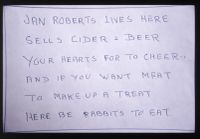 JAN ROBERTS LIVES HERE
SELLS CIDER & BEER
YOUR HEARTS FOR TO CHEER
AND IF YOU WANT MEAT
TO MAKE UP A TREAT
HERE BE RABBITS TO EAT